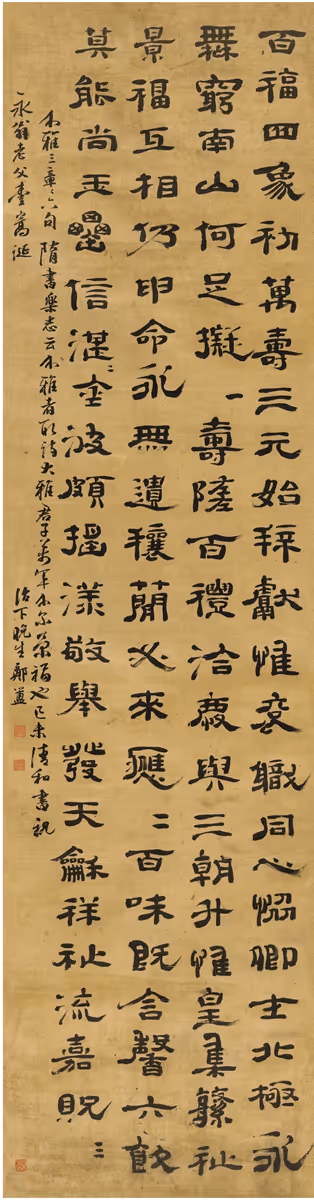 百福四象初萬壽三元始拜獻惟袞職同心恊卿士北極永
橆窮南山何足擬一壽隆百禮洽慶與三朝升惟皇集繁祉
景福互相仍申命永無遺穰蕳必來應二百味既含馨六飲
莫能尚玉罍信湛〻金波頗搖漾敬舉發天龢祥祉流嘉貺三
介雅三章〻六句 隋書樂志云介雅者取詩大雅君子萬年介爾景福也己未清和書祝
永翁老父臺嵩誕
治下晚生鄭簠